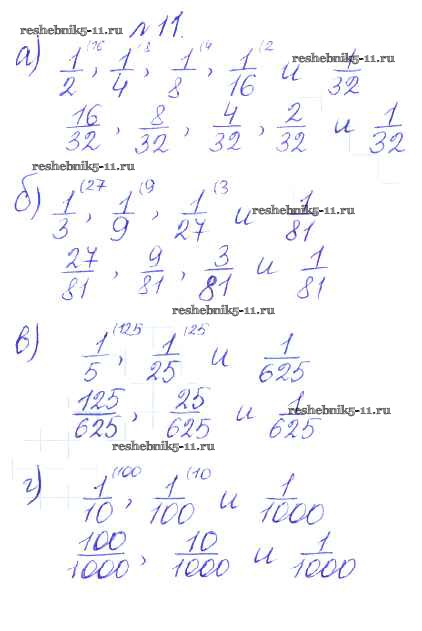 №11.
reshebnik5-11.ru
а) 1/2 (16, 1/4 (8, 1/8 (4, 1/16 (2 и 1/32
reshebnik5-11.ru
16/32, 8/32, 4/32, 2/32 и 1/32
reshebnik5-11.ru
б) 1/3 (27, 1/9 (9, 1/27 (3 и 1/81
reshebnik5-11.ru
27/81, 9/81, 3/81 и 1/81
reshebnik5-11.ru
в) 1/5 (125, 1/25 (25 и 1/625
125/625, 25/625 и 1/625
reshebnik5-11.ru
reshebnik5-11.ru
г) 1/10 (100, 1/100 (10 и 1/1000
100/1000, 10/1000 и 1/1000